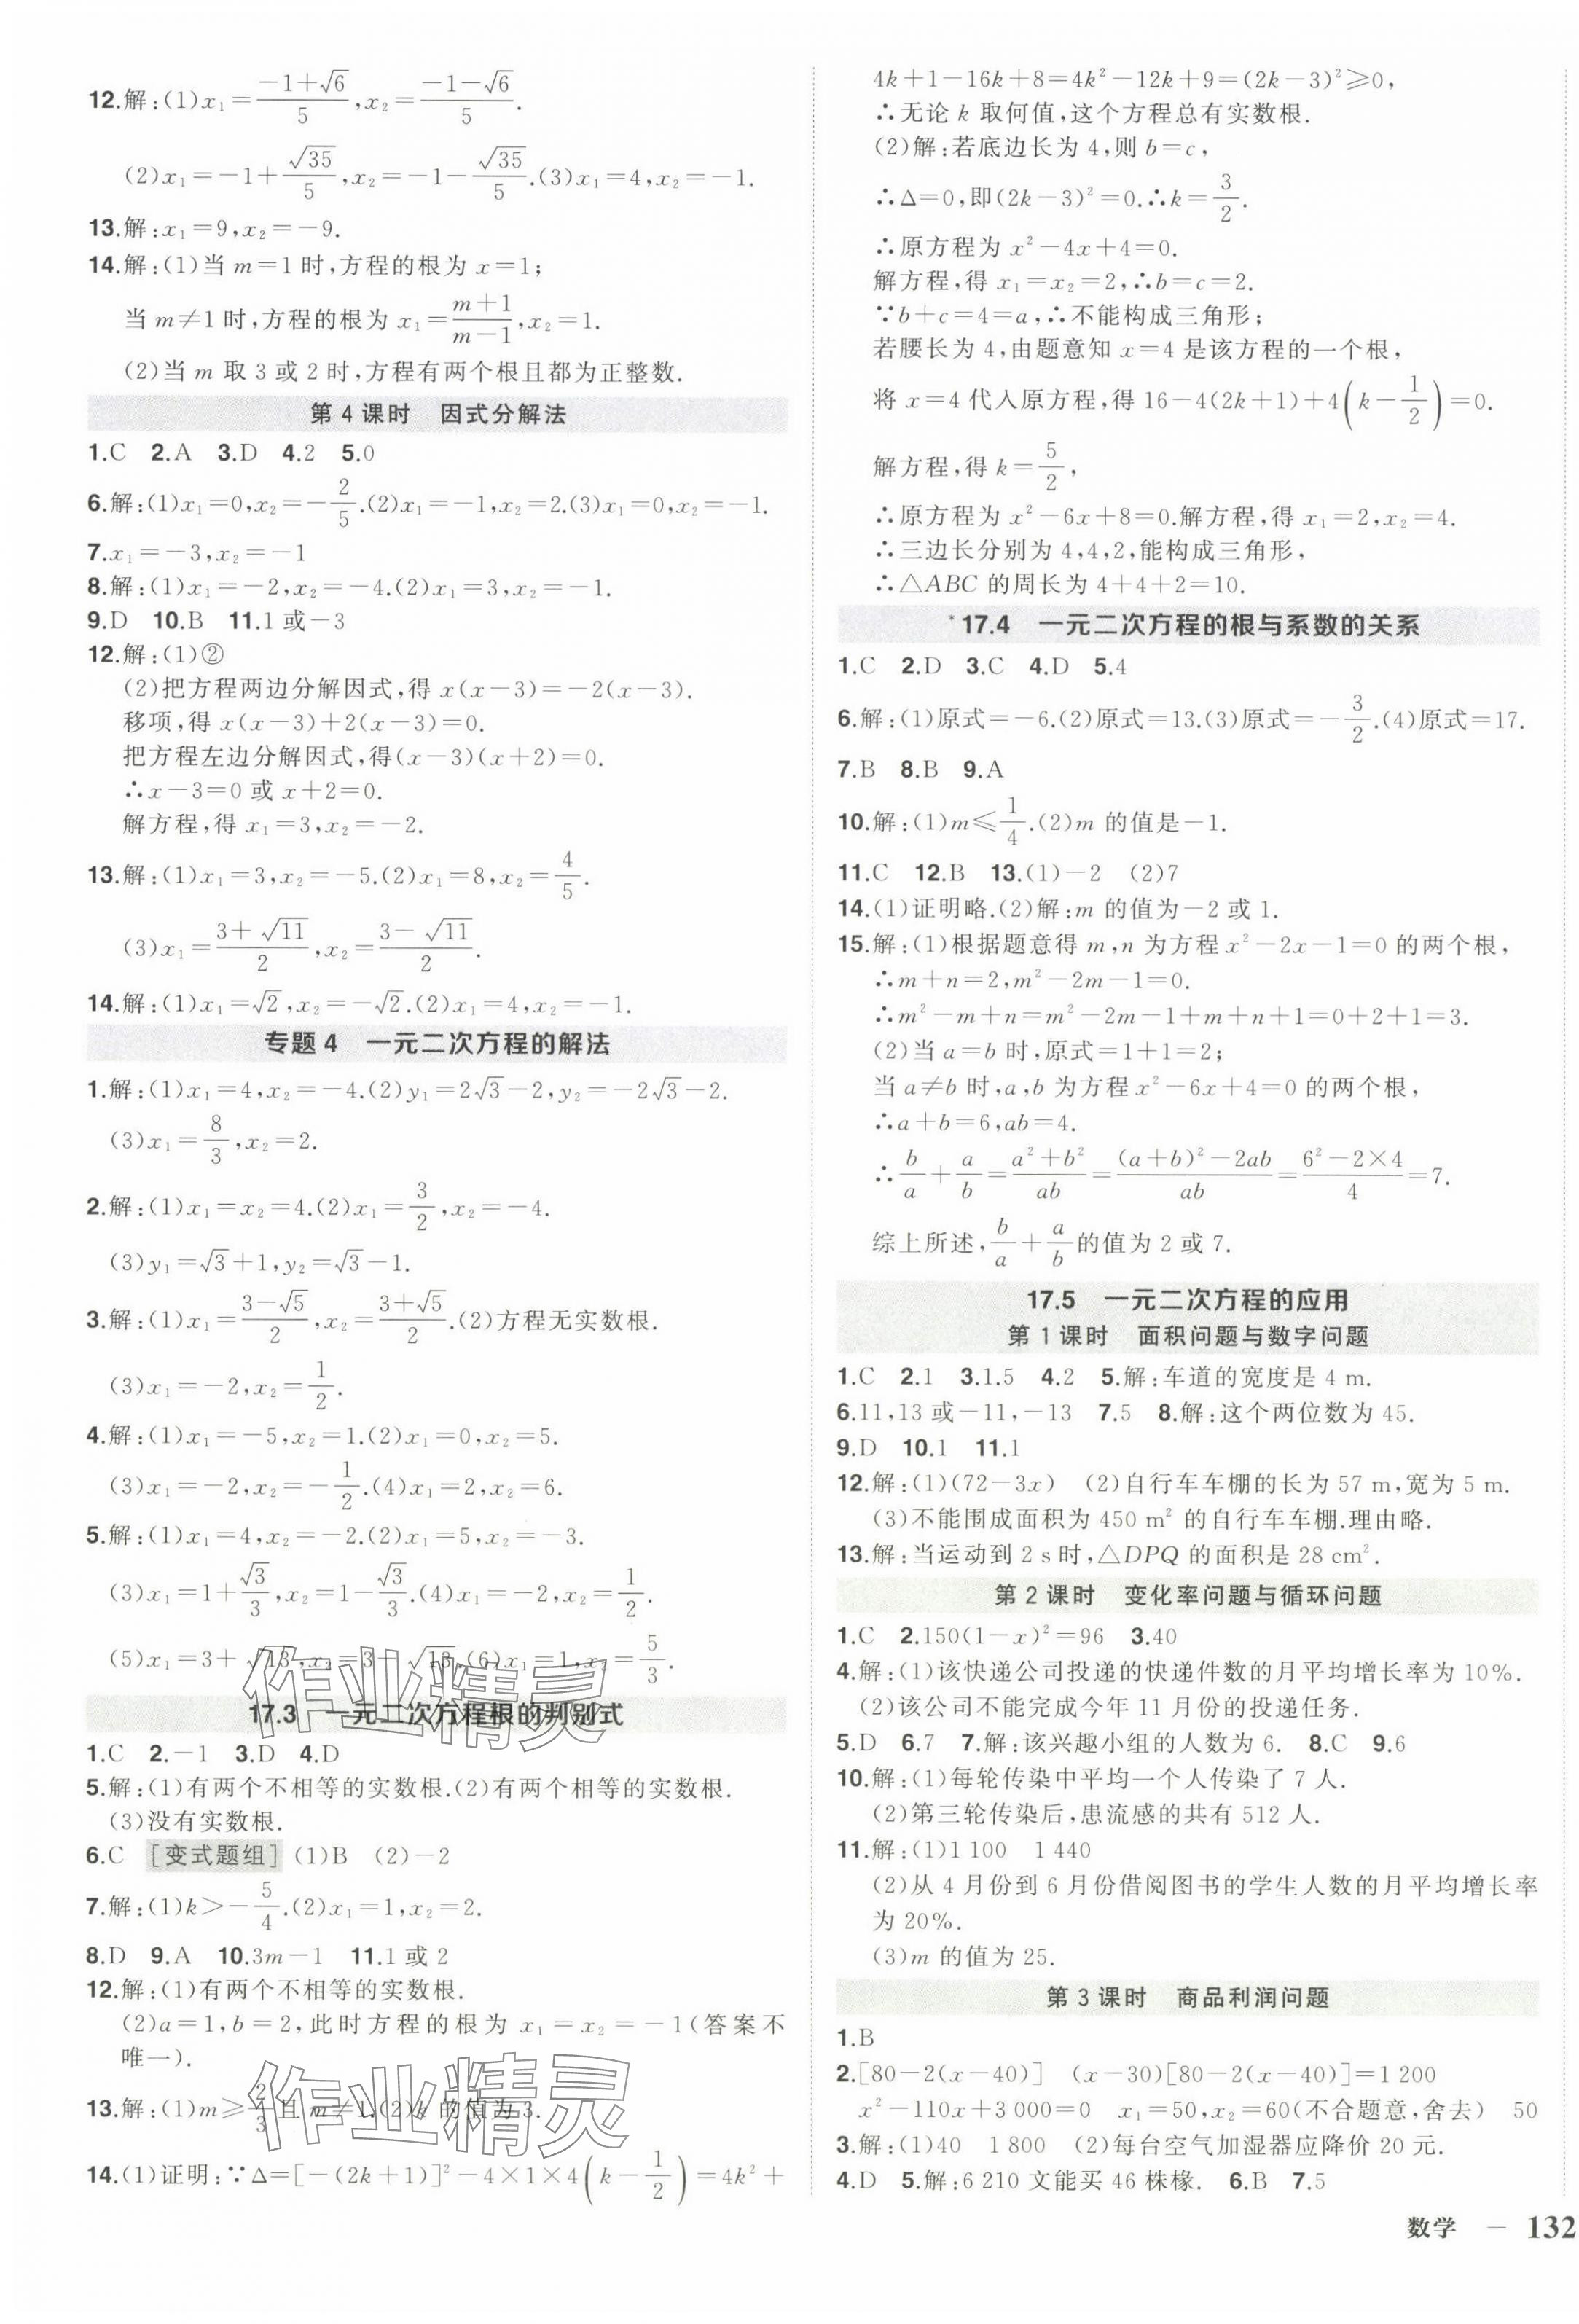 12.解:(1)x₁=(-1+√6)/5,x₂=(-1-√6)/5.
(2)x₁=-1+√35/5,x₂=-1-√35/5.(3)x₁=4,x₂=-1.
13.解:x₁=9,x₂=-9.
14.解:(1)当 m=1 时,方程的根为 x=1;
当 m≠1 时,方程的根为 x₁=(m+1)/(m-1),x₂=1.
(2)当 m 取 3 或 2 时,方程有两个根且都为正整数.
第 4 课时 因式分解法
1.C 2.A 3.D 4.2 5.0
6.解:(1)x₁=0,x₂=-2/5.(2)x₁=-1,x₂=2.(3)x₁=0,x₂=-1.
7.x₁=-3,x₂=-1
8.解:(1)x₁=-2,x₂=-4.(2)x₁=3,x₂=-1.
9.D 10.B 11.1 或-3
12.解:(1)②
(2)把方程两边分解因式,得 x(x-3)=-2(x-3).
移项,得 x(x-3)+2(x-3)=0.
把方程左边分解因式,得(x-3)(x+2)=0.
∴x-3=0 或 x+2=0.
解方程,得 x₁=3,x₂=-2.
13.解:(1)x₁=3,x₂=-5.(2)x₁=8,x₂=4/5.
(3)x₁=(3+√11)/2,x₂=(3-√11)/2.
14.解:(1)x₁=√2,x₂=-√2.(2)x₁=4,x₂=-1.
专题 4 一元二次方程的解法
1.解:(1)x₁=4,x₂=-4.(2)y₁=2√3-2,y₂=-2√3-2.
(3)x₁=8/3,x₂=2.
2.解:(1)x₁=x₂=4.(2)x₁=3/2,x₂=-4.
(3)y₁=√3+1,y₂=√3-1.
3.解:(1)x₁=(3-√5)/2,x₂=(3+√5)/2.(2)方程无实数根.
(3)x₁=-2,x₂=1/2.
4.解:(1)x₁=-5,x₂=1.(2)x₁=0,x₂=5.
(3)x₁=-2,x₂=-1/2.(4)x₁=2,x₂=6.
5.解:(1)x₁=4,x₂=-2.(2)x₁=5,x₂=-3.
(3)x₁=1+√3/3,x₂=1-√3/3.(4)x₁=-2,x₂=1/2.
(5)x₁=3+√13,x₂=3-√13.(6)x₁=1,x₂=5/3.
17.3 一元二次方程根的判别式
1.C 2.-1 3.D 4.D
5.解:(1)有两个不相等的实数根.(2)有两个相等的实数根.
(3)没有实数根.
6.C [变式题组] (1)B (2)-2
7.解:(1)k>-5/4.(2)x₁=1,x₂=2.
8.D 9.A 10.3m-1 11.1 或 2
12.解:(1)有两个不相等的实数根.
(2)a=1,b=2,此时方程的根为 x₁=x₂=-1(答案不
唯一).
13.解:(1)m≥2/3且 m≠1.(2)k 的值为 3.
14.(1)证明:∵Δ=[-(2k+1)]²-4×1×4(k-1/2)=4k²+
4k+1-16k+8=4k²-12k+9=(2k-3)²≥0,
∴无论 k 取何值,这个方程总有实数根.
(2)解:若底边长为 4,则 b=c,
∴Δ=0,即(2k-3)²=0.∴k=3/2.
∴原方程为 x²-4x+4=0.
解方程,得 x₁=x₂=2,∴b=c=2.
∵b+c=4=a,∴不能构成三角形;
若腰长为 4,由题意知 x=4 是该方程的一个根,
将 x=4 代入原方程,得 16-4(2k+1)+4(k-1/2)=0.
解方程,得 k=5/2,
∴原方程为 x²-6x+8=0.解方程,得 x₁=2,x₂=4.
∴三边长分别为 4,4,2,能构成三角形,
∴△ABC 的周长为 4+4+2=10.
*17.4 一元二次方程的根与系数的关系
1.C 2.D 3.C 4.D 5.4
6.解:(1)原式=-6.(2)原式=13.(3)原式=-3/2.(4)原式=17.
7.B 8.B 9.A
10.解:(1)m≤1/4.(2)m 的值是-1.
11.C 12.B 13.(1)-2 (2)7
14.(1)证明略.(2)解:m 的值为-2 或 1.
15.解:(1)根据题意得 m,n 为方程 x²-2x-1=0 的两个根,
∴m+n=2,m²-2m-1=0.
∴m²-m+n=m²-2m-1+m+n+1=0+2+1=3.
(2)当 a=b 时,原式=1+1=2;
当 a≠b 时,a,b 为方程 x²-6x+4=0 的两个根,
∴a+b=6,ab=4.
∴b/a+a/b=(a²+b²)/ab=((a+b)²-2ab)/ab=(6²-2×4)/4=7.
综上所述,b/a+a/b的值为 2 或 7.
17.5 一元二次方程的应用
第 1 课时 面积问题与数字问题
1.C 2.1 3.1.5 4.2 5.解:车道的宽度是 4 m.
6.11,13 或-11,-13 7.5 8.解:这个两位数为 45.
9.D 10.1 11.1
12.解:(1)(72-3x) (2)自行车车棚的长为 57 m,宽为 5 m.
(3)不能围成面积为 450 m² 的自行车车棚.理由略.
13.解:当运动到 2 s 时,△DPQ 的面积是 28 cm².
第 2 课时 变化率问题与循环问题
1.C 2.150(1-x)²=96 3.40
4.解:(1)该快递公司投递的快递件数的月平均增长率为 10%.
(2)该公司不能完成今年 11 月份的投递任务.
5.D 6.7 7.解:该兴趣小组的人数为 6. 8.C 9.6
10.解:(1)每轮传染中平均一个人传染了 7 人.
(2)第三轮传染后,患流感的共有 512 人.
11.解:(1)1 100 1 440
(2)从 4 月份到 6 月份借阅图书的学生人数的月平均增长率
为 20%.
(3)m 的值为 25.
第 3 课时 商品利润问题
1.B
2.[80-2(x-40)] (x-30)[80-2(x-40)]=1 200
x²-110x+3 000=0 x₁=50,x₂=60(不合题意,舍去) 50
3.解:(1)40 1 800 (2)每台空气加湿器应降价 20 元.
4.D 5.解:6 210 文能买 46 株椽. 6.B 7.5
数学 — 132
作业精灵
作业精灵